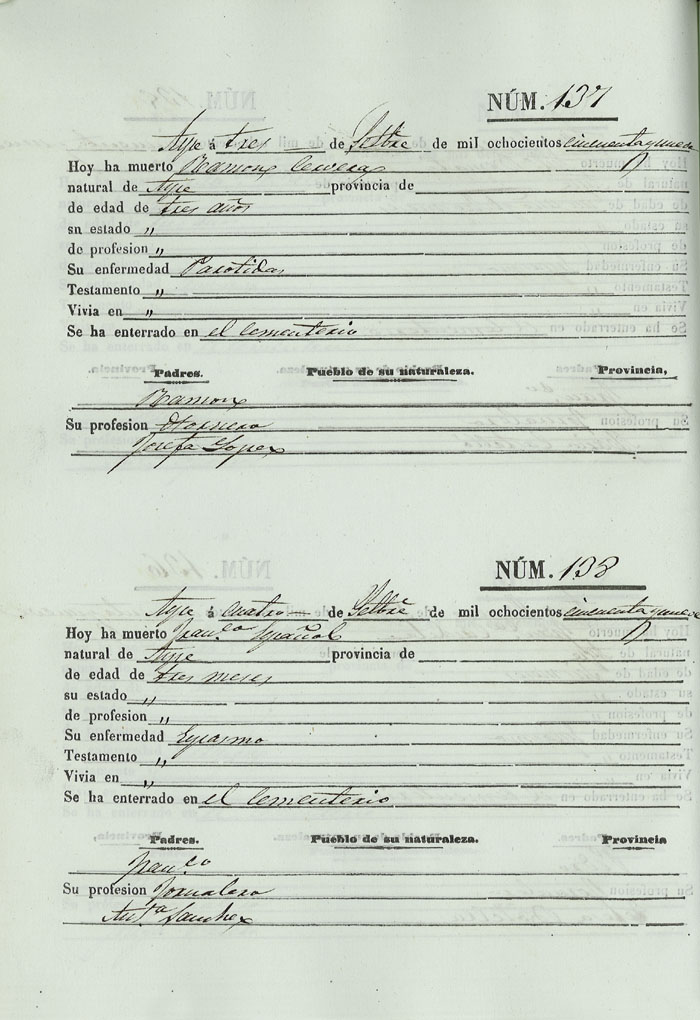 NÚM. 137
Aspe á tres de Setbre de mil ochocientos cincuenta y nueve
Hoy ha muerto Ramon Cervera
natural de Aspe provincia de
de edad de tres años
sn estado "
de profesion "
Su enfermedad Parotidas
Testamento "
Vivia en "
Se ha enterrado en el Cementerio
Padres. Pueblo de su naturaleza. Provincia,
Ramon
Su profesion Hornero
Josefa Lopez
NÚM. 138
Aspe á cuatro de Setbre de mil ochocientos cincuenta y nueve
Hoy ha muerto Franco Español
natural de Aspe provincia de
de edad de tres meses
su estado "
de profesion "
Su enfermedad
Testamento "
Vivia en "
Se ha enterrado en el Cementerio
Padres. Pueblo de su naturaleza. Provincia
Franco
Su profesion Jornalero
Anta Sanchez